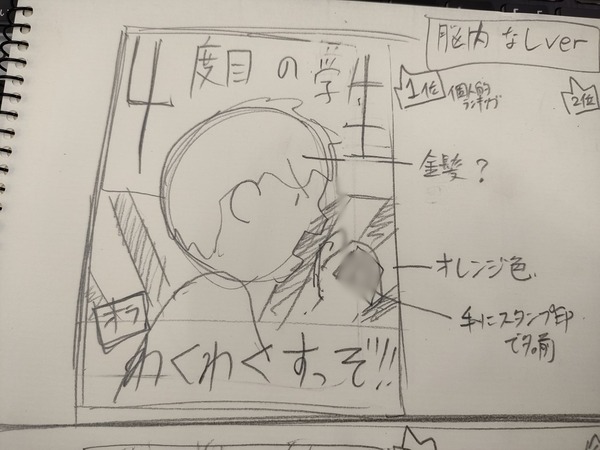 脳内なしver
1位 個人的ランキング
2位
4度目の学4
金髪?
オレンジ色
手にスタンプ印
で名前
オラ
わくわくすっぞ!!!